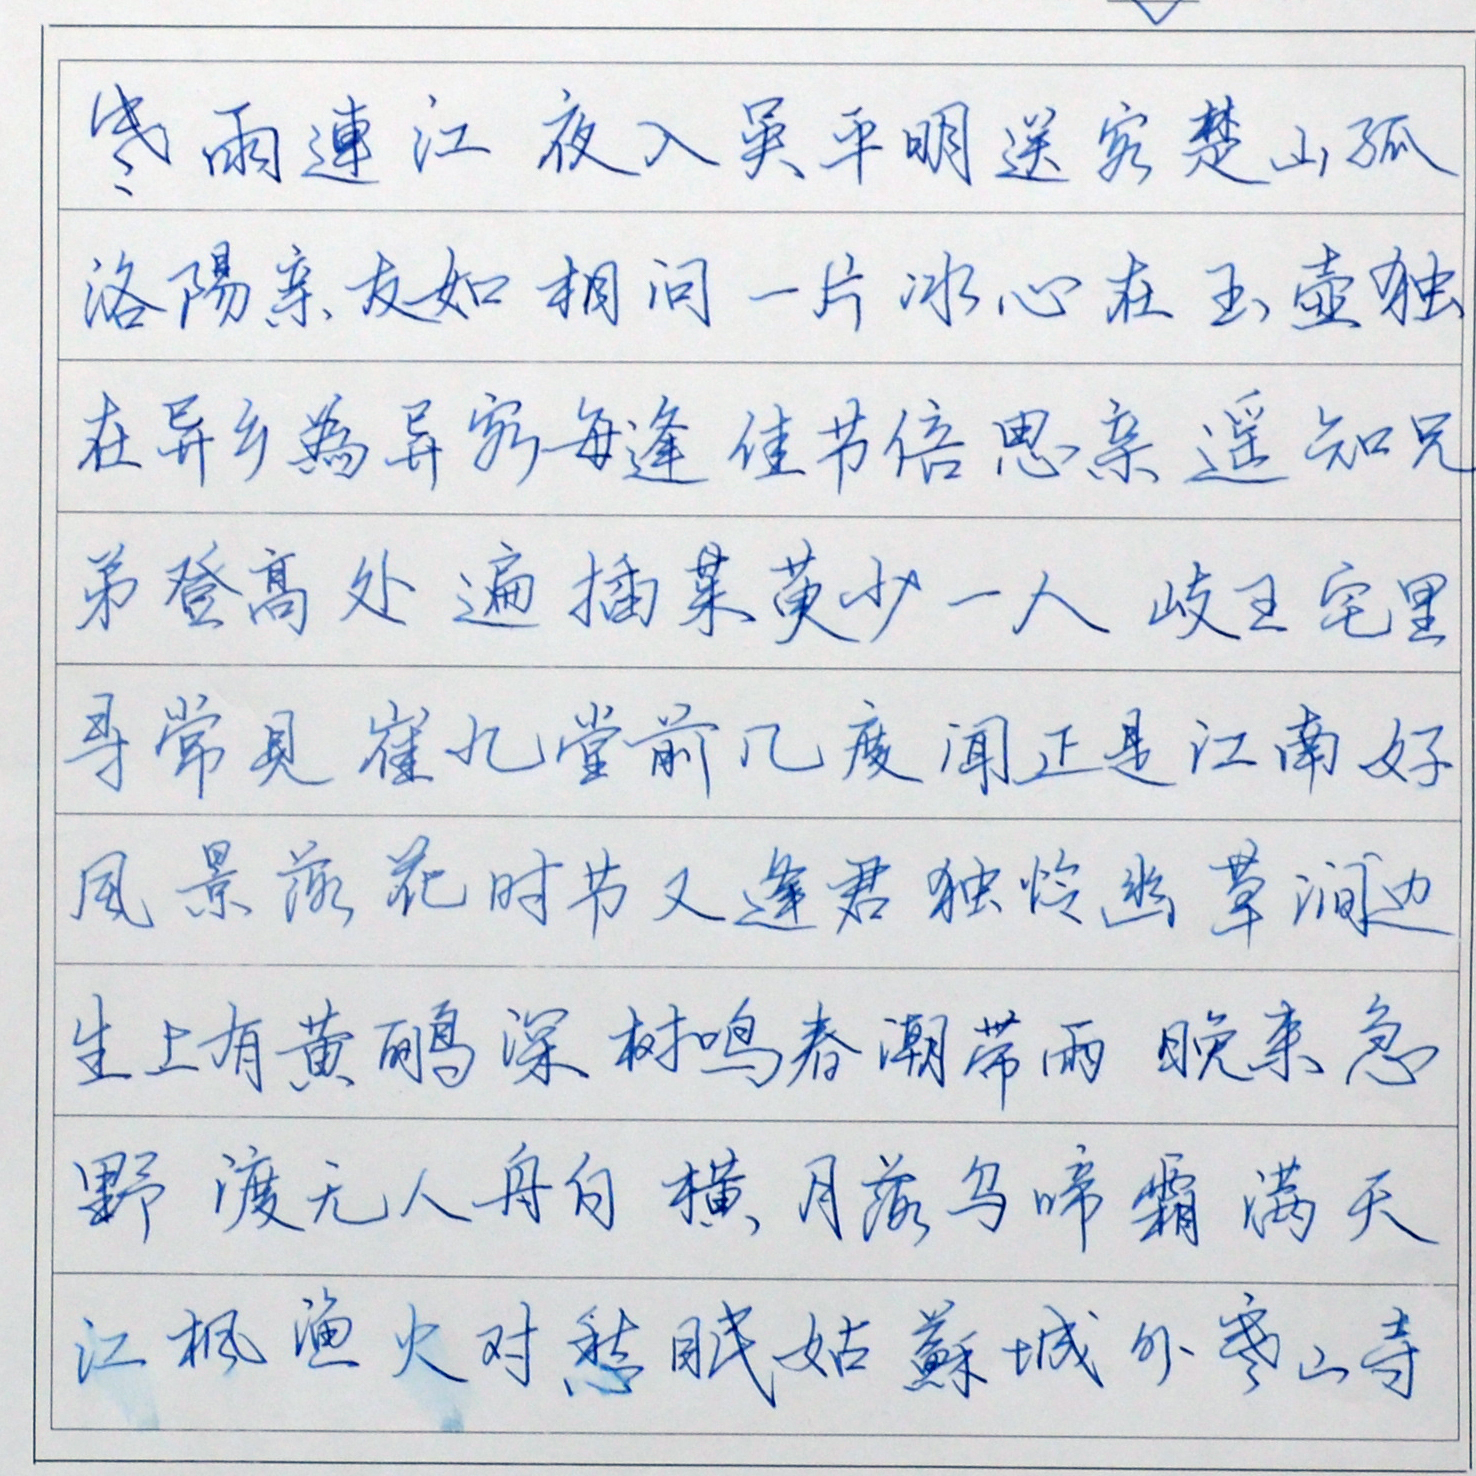 寒雨連江夜入吴平明送客楚山孤
洛陽亲友如相问一片冰心在玉壶独
在异乡為异客每逢佳节倍思亲遥知兄
弟登高处遍插茱萸少一人岐王宅里
寻常見崔九堂前几度闻正是江南好
风景落花时节又逢君独怜幽草涧边
生上有黄鹂深树鸣春潮带雨晚来急
野渡无人舟自横月落乌啼霜满天
江枫渔火对愁眠姑蘇城外寒山寺